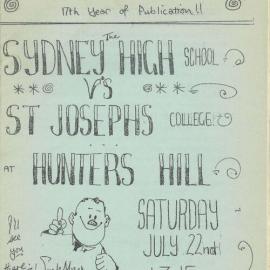 17th Year of Publication!!
The
SYDNEY HIGH SCHOOL
VS
ST JOSEPHS COLLEGE
AT HUNTERS HILL
SATURDAY
JULY 22nd
I'll
see
you